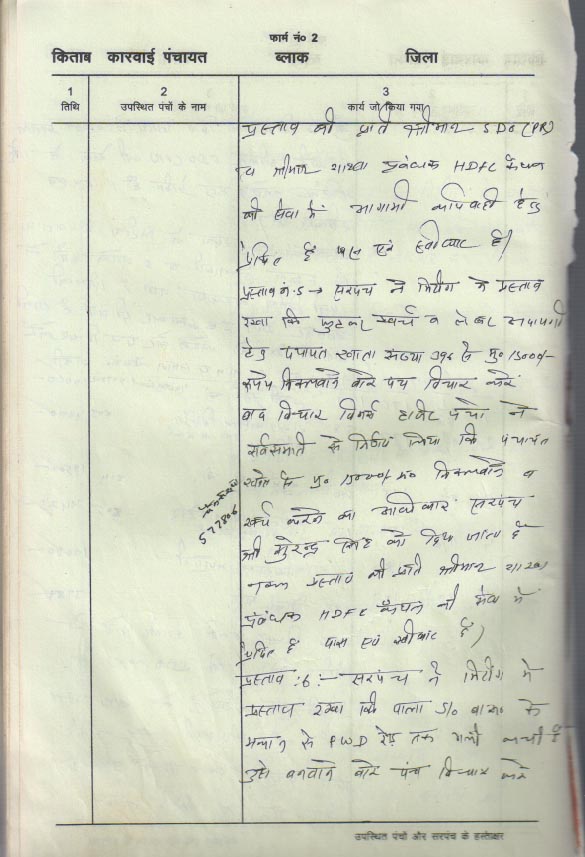 फार्म नं० 2
किताब कारवाई पंचायत ब्लाक जिला
1 2 3
तिथि उपस्थित पंचों के नाम कार्य जो किया गया
प्रस्ताव की प्रति श्रीमान SDO (PR)
व श्रीमान शाखा प्रबंधक HDFC कैथल
की सेवा में आगामी कार्यवाही हेतु
प्रेषित है पास एवं स्वीकार है।
प्रस्ताव न.5 → सरपंच ने मिटींग मे प्रस्ताव
रखा कि फुटकर खर्च व लेबर अदायगी
हेतु पंचायत खाता संख्या से मु० 15000/-
रूपये निकलवाने बारे पंच विचार करें
बाद विचार विमर्श हाजिर पंचो ने
सर्वसमति से निर्णय लिया कि पंचायत
खाते से मु० 15000/- रू० निकलवाने व
खर्च करने का अधिकार सरपंच
श्री सुरेन्द्र सिंह को दिया जाता है
नकल प्रस्ताव की प्रति श्रीमान शाखा
प्रबंधक HDFC कैथल की सेवा में
प्रेषित है पास एवं स्वीकार है।
577806
प्रस्ताव :6:- सरपंच ने मिटींग मे
प्रस्ताव रखा कि पाला S/o के
मकान से PWD रोड़ तक गली कच्ची है
उसे बनवाने बारे पंच विचार करे
उपस्थित पंचों और सरपंच के हस्ताक्षर